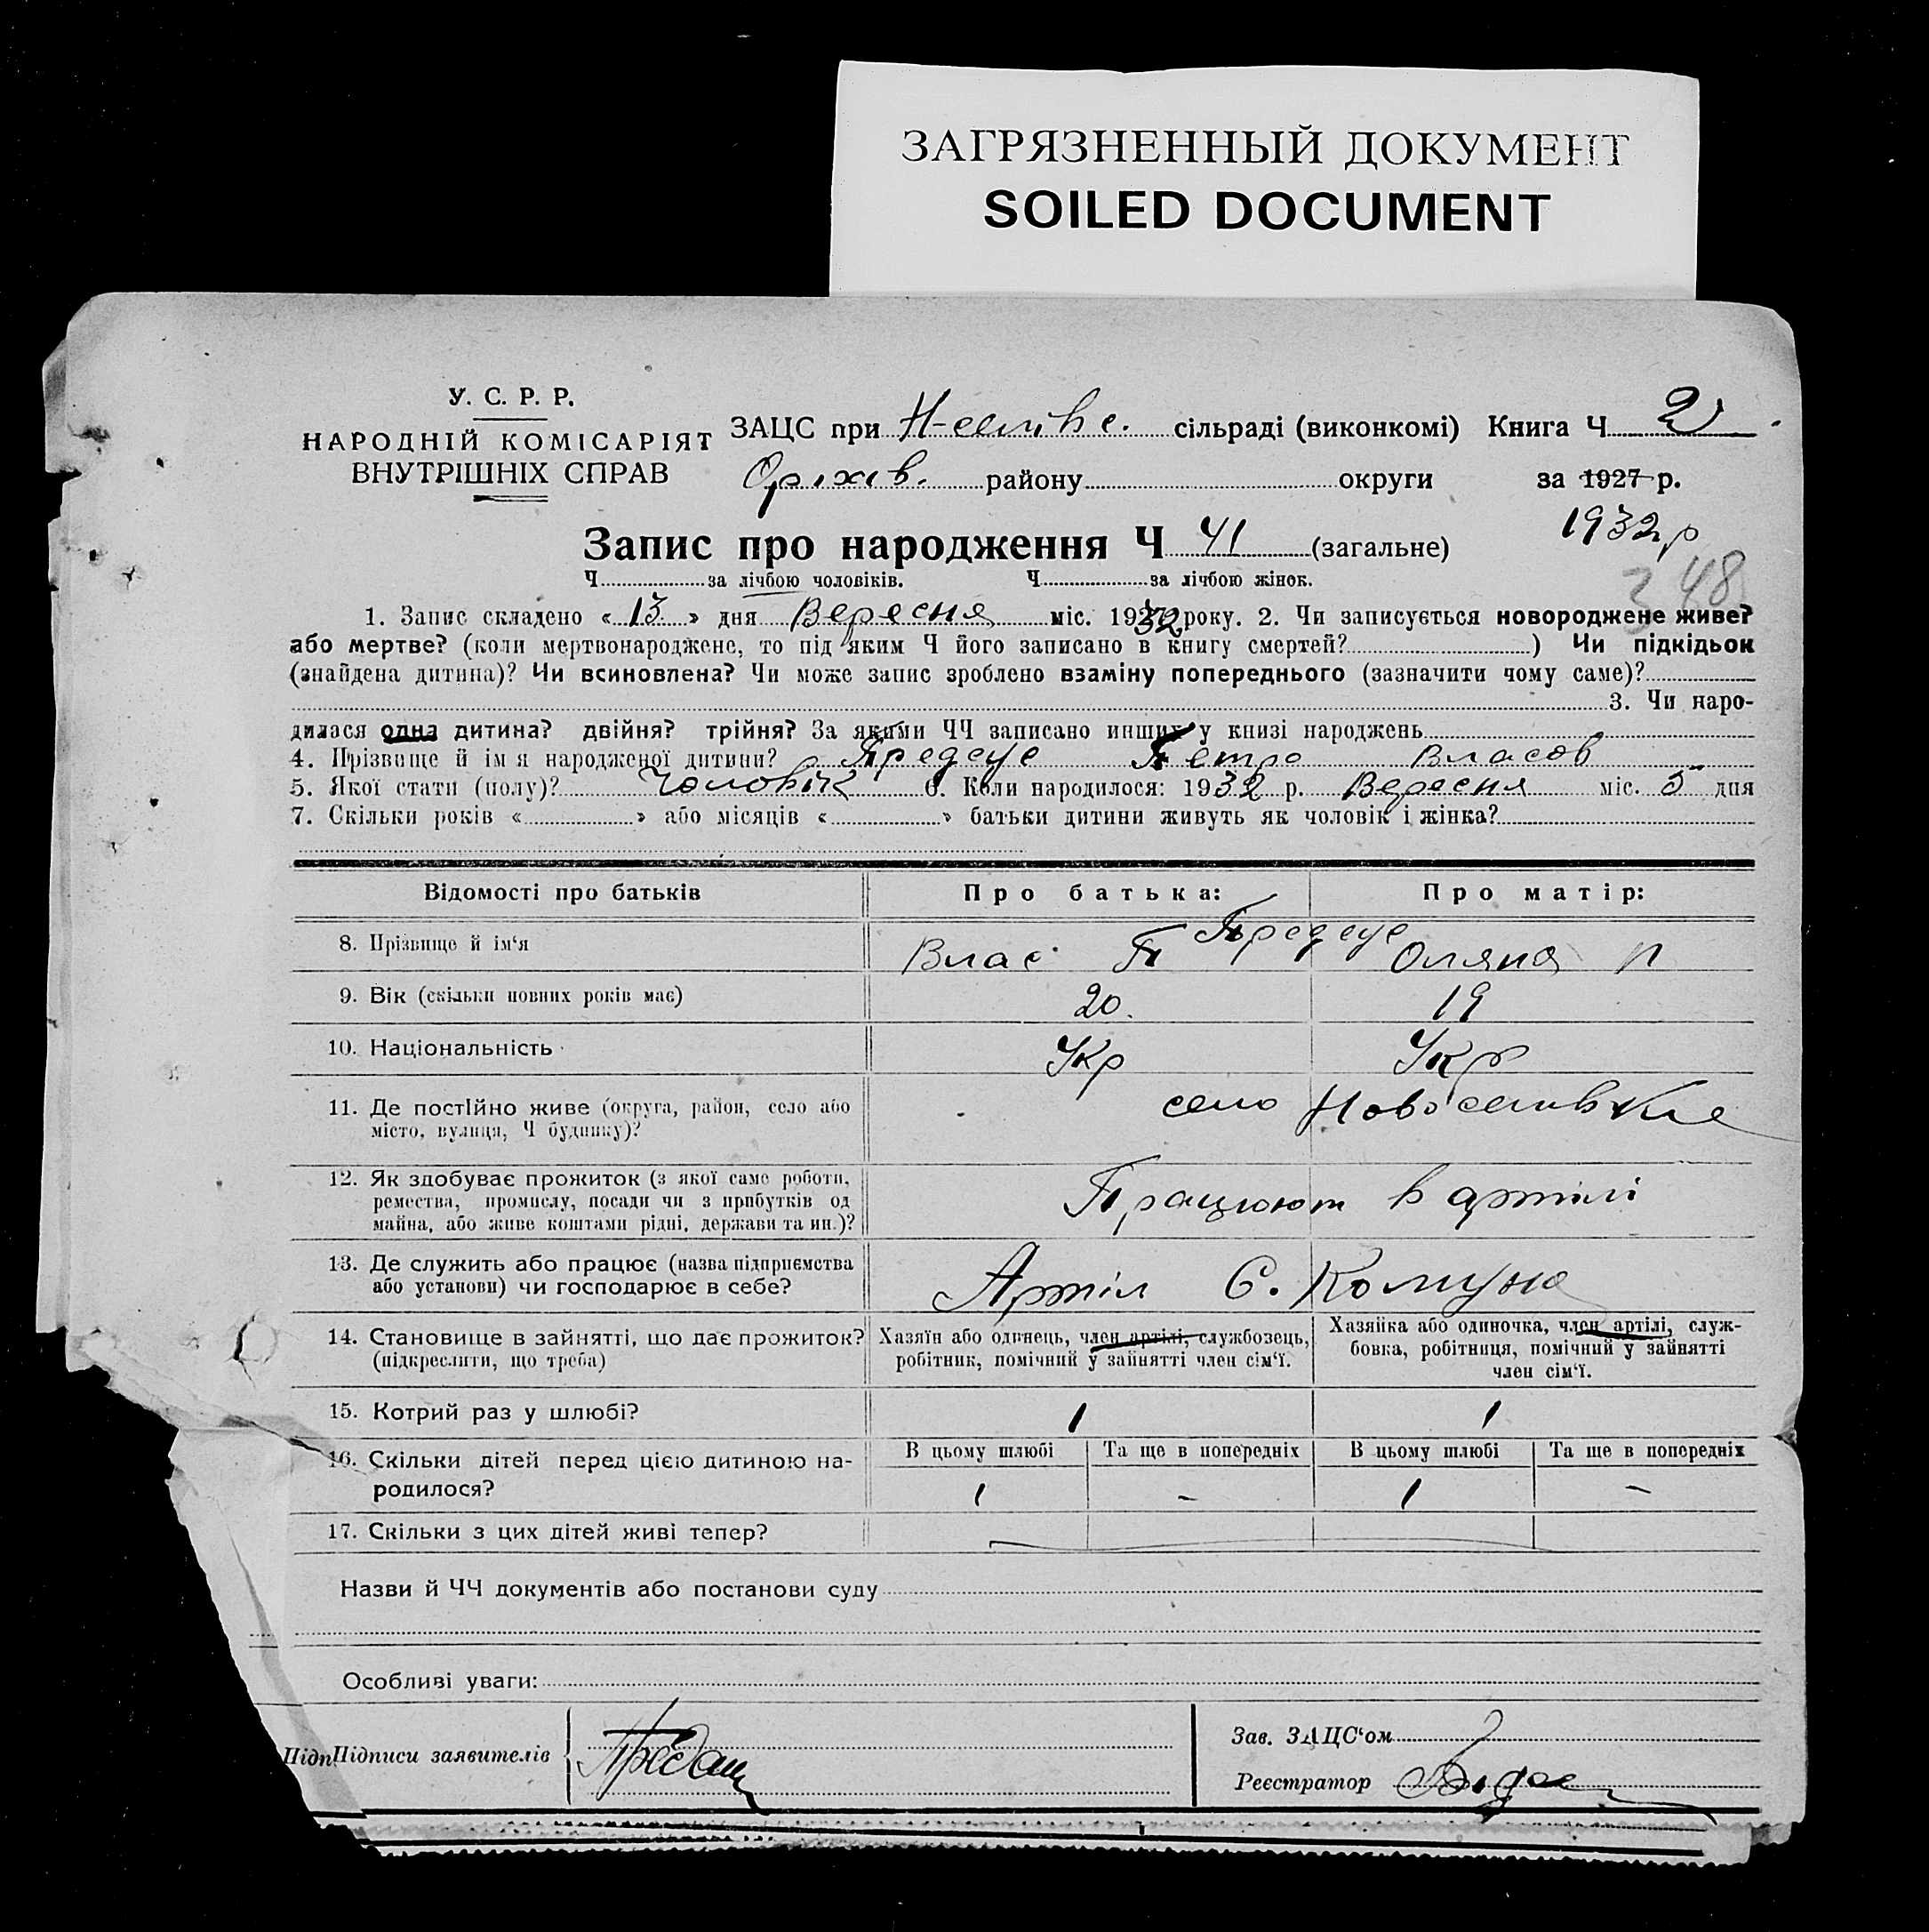 ЗАГРЯЗНЕННЫЙ ДОКУМЕНТ
SOILED DOCUMENT
У. С. Р. Р.
НАРОДНІЙ КОМІСАРІЯТ
ВНУТРІШНІХ СПРАВ
ЗАЦС при Н-селівс. сільраді (виконкомі) Книга Ч 2
Оріхів. району округи за 1927 р.
1932 р
Запис про народження Ч 41 (загальне)
Ч за лічбою чоловіків. Ч за лічбою жінок.
348
1. Запис складено « 13 » дня Вересня міс. 1932 року. 2. Чи записується новороджене живе?
або мертве? (коли мертвонароджене, то під яким Ч його записано в книгу смертей? ) Чи підкідьок
(знайдена дитина)? Чи всиновлена? Чи може запис зроблено взаміну попереднього (зазначити чому саме)?
3. Чи наро-
дилася одна дитина? двійня? трійня? За якими ЧЧ записано инших у книзі народжень
4. Прізвище й ім'я народженої дитини? Предеус Петро Власов
5. Якої стати (полу)? Чоловік 6. Коли народилося: 1932 р. Вересня міс. 5 дня
7. Скільки років « » або місяців « » батьки дитини живуть як чоловік і жінка?
Відомості про батьків Про батька: Про матір:
Предеус
8. Прізвище й ім'я Влас П Оляна П
9. Вік (скільки повних років має) 20. 19
10. Національність Укр Укр
11. Де постійно живе (округа, район, село або
місто, вулиця, Ч будинку)? село Новоселивка
12. Як здобуває прожиток (з якої саме роботи,
ремества, промислу, посади чи з прибутків од
майна, або живе коштами рідні, держави та ин.)? Працюют в артілі
13. Де служить або працює (назва підприємства
або установи) чи господарює в себе? Артіл С. Комуна
14. Становище в зайнятті, що дає прожиток?
(підкреслити, що треба)
Хазяїн або одинець, член артілі, службовець,
робітник, помічний у зайнятті член сім'ї.
Хазяйка або одиночка, член артілі, служ-
бовка, робітниця, помічний у зайнятті
член сім'ї.
15. Котрий раз у шлюбі? 1 1
В цьому шлюбі Та ще в попередніх В цьому шлюбі Та ще в попередніх
16. Скільки дітей перед цією дитиною на-
родилося? 1 - 1 -
17. Скільки з цих дітей живі тепер?
Назви й ЧЧ документів або постанови суду
Особливі уваги:
Підписи заявителів
Зав. ЗАЦС'ом
Реєстратор